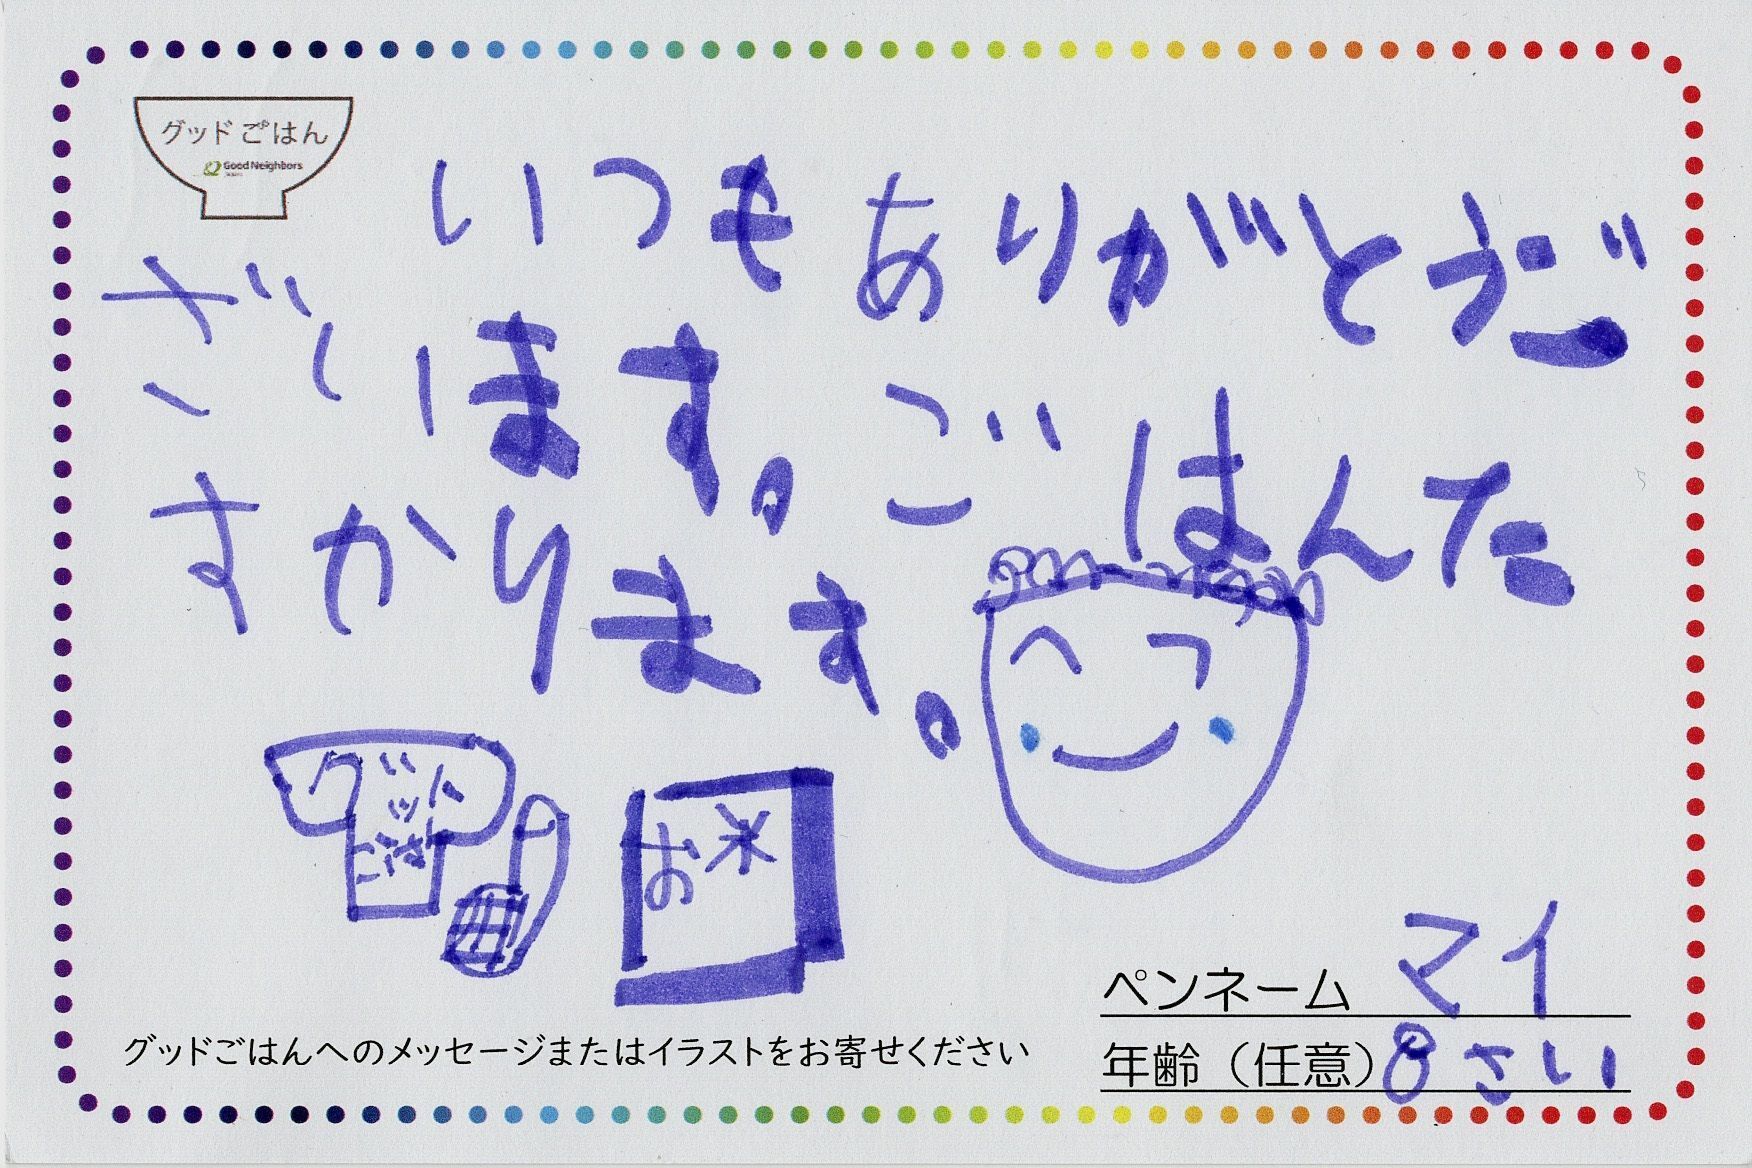 グッドごはん
Good Neighbors
いつもありがとうご
ざいます。ごはんた
すかります。
グッド
ごはん
お米
ペンネーム マイ
年齢（任意）8さい
グッドごはんへのメッセージまたはイラストをお寄せください